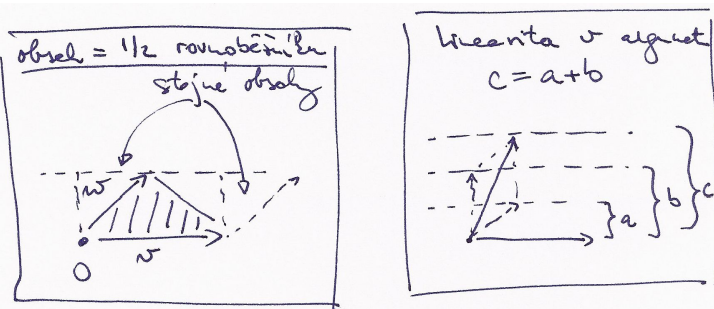 obsah = 1/2 rovnoběžníku
stejné obsahy
w
v
O
Linearita v argumet
c = a+b
a
b
c